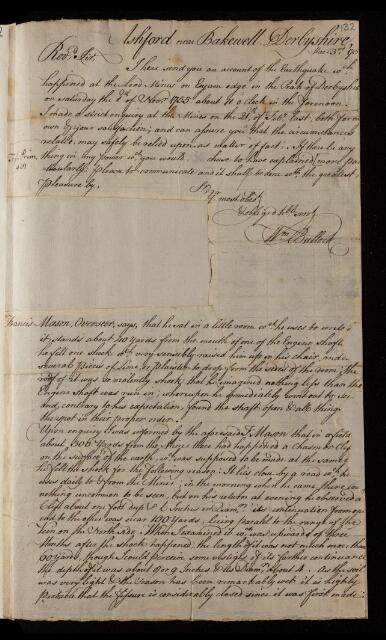 132
Ashford near Bakewell Derbyshire,
Mar. 3rd 175
Revd. Sir,
I here send you an account of the Earthquake wch.
happened at the Lead Mines on Eyam edge in the Peak of Derbyshire
on Saturday the 1st of Novr. 1755 about 11 o clock in the forenoon.
I made a strict enquiry at the Mines on the 21st of Febr. last, both for my
own & your satisfaction; and can assure you that the circumstances
related, may safely be relied upon, as matter of fact. If there be any
thing in my power wch. you would chuse to have explained more par
ticularly: Please to communicate and it shall be done wth. the greatest
Pleasure by,
Sr.
Yr. most obedt.
& obliged hble. servt.
Wm. Bullock
Francis Mason, Overseer, says, that he sat in a little room wch. he uses to write in
it stands about yards from the mouth of one of the Engine Shafts,
he felt one shock wch. very sensibly raised him up in his chair, and
several Pieces of Lime, or Plaister to drop from the sides of the room; the
roof of it was so violently shook, that he imagined nothing less than the
Engine Shaft was run in; whereupon he immediately went out to see
and, contrary to his expectation, found the shaft open & all things
thereon in their proper order.
Upon enquiry I was informed by the aforesaid F. Mason that in a field
about yards from the Mines there had happened a Chasm, or Cleft
on the surface of the earth, wch. was supposed to be made at the same time
he felt the shock for the following reason: It lies close by a road wch. he
uses daily to & from the Mines; in the morning when he came, there was
nothing uncommon to be seen, but on his return at evening he observed a
Cleft about one foot deep & 6 Inches in Diamr.; its continuation from one
end to the other was near 150 Yards, being parallel to the range of the
Vein on the North side. When I examined it wch. was upwards of three
Months after the shock happened, the length of it was not much more than
60 yards, though I could perceive some vestiges of its farther continuance
the depth of it was about 8 or 9 Inches & its Diamr. about 4. As the soil
was very light & the season has been remarkably wet it is highly
probable that the fissure is considerably closed since it was first made: